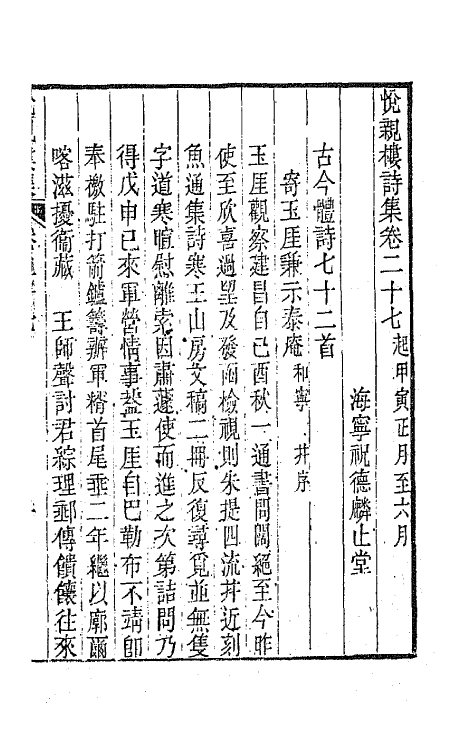 悅親樓詩集卷二十七起甲寅正月至六月
海寧祝德麟止堂
古今體詩七十二首
寄玉厓兼示泰庵和寧并序
玉厓觀察建昌自己酉秋一通書問闊絕至今昨
使至欣喜過望及發函檢視則朱提四流并近刻
魚通集詩寒玉山房文稿二冊反復尋覓並無隻
字道寒暄慰離索因肅蘧使而進之次第詰問乃
得戊申已來軍營情事葢玉厓自巴勒布不靖卽
奉檄駐打箭鑪籌辦軍糈首尾乖二年繼以廓爾
喀滋擾衞藏　王師聲討君綜理郵傳饋饟往來